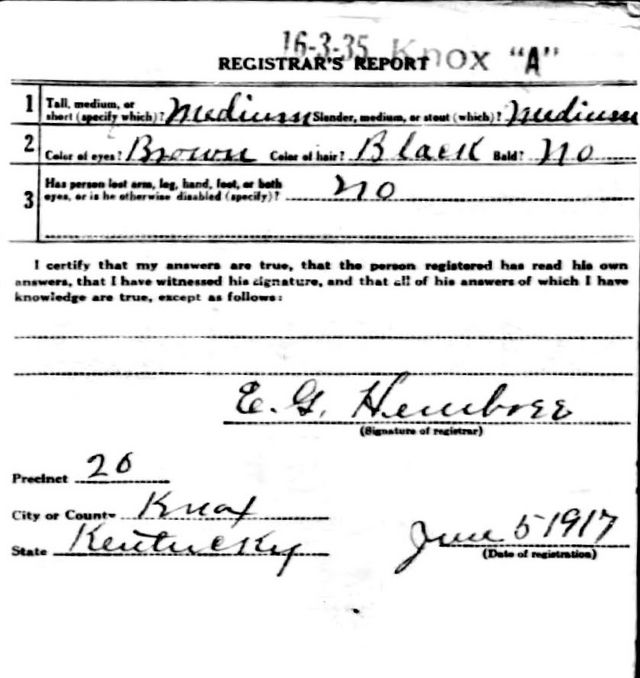 16-3-35 Knox "A"
REGISTRAR'S REPORT
1 Tall, medium, or short (specify which)? Medium Slender, medium, or stout (which)? Medium
2 Color of eyes? Brown Color of hair? Black Bald? No
3 Has person lost arm, leg, hand, foot, or both eyes, or is he otherwise disabled (specify)? no
I certify that my answers are true, that the person registered has read his own
answers, that I have witnessed his signature, and that all of his answers of which I have
knowledge are true, except as follows:
E. G. Hembree
(Signature of registrar)
Precinct 20
City or County Knox
State Kentucky
June 5 1917
(Date of registration)